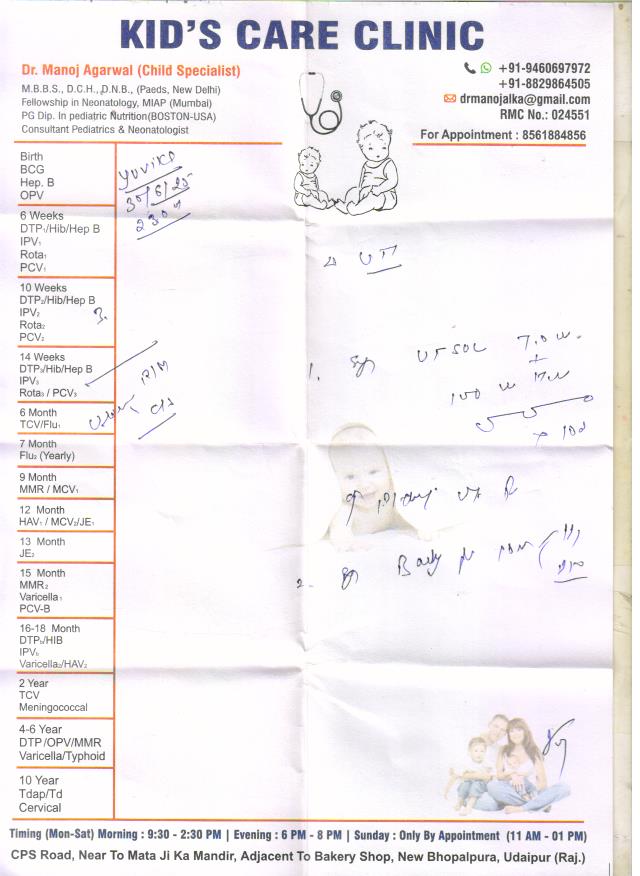 KID'S CARE CLINIC
Dr. Manoj Agarwal (Child Specialist)
M.B.B.S., D.C.H., D.N.B., (Paeds, New Delhi)
Fellowship in Neonatology, MIAP (Mumbai)
PG Dip. In pediatric Nutrition(BOSTON-USA)
Consultant Pediatrics & Neonatologist
+91-9460697972
+91-8829864505
drmanojalka@gmail.com
RMC No.: 024551
For Appointment : 8561884856
Birth
BCG
Hep. B
OPV
30/6/25
6 Weeks
DTP1/Hib/Hep B
IPV1
Rota1
PCV1
UTI
10 Weeks
DTP2/Hib/Hep B
IPV2
Rota2
PCV2
14 Weeks
DTP3/Hib/Hep B
IPV3
Rota3 / PCV3
Urine R/M
C/S
1. Syp
x 10d
6 Month
TCV/Flu1
7 Month
Flu2 (Yearly)
9 Month
MMR / MCV1
12 Month
HAV1 / MCV2/JE1
13 Month
JE2
2.
15 Month
MMR2
Varicella1
PCV-B
16-18 Month
DTP5/HIB
IPV5
Varicella2/HAV2
2 Year
TCV
Meningococcal
4-6 Year
DTP /OPV/MMR
Varicella/Typhoid
10 Year
Tdap/Td
Cervical
Timing (Mon-Sat) Morning : 9:30 - 2:30 PM | Evening : 6 PM - 8 PM | Sunday : Only By Appointment (11 AM - 01 PM)
CPS Road, Near To Mata Ji Ka Mandir, Adjacent To Bakery Shop, New Bhopalpura, Udaipur (Raj.)